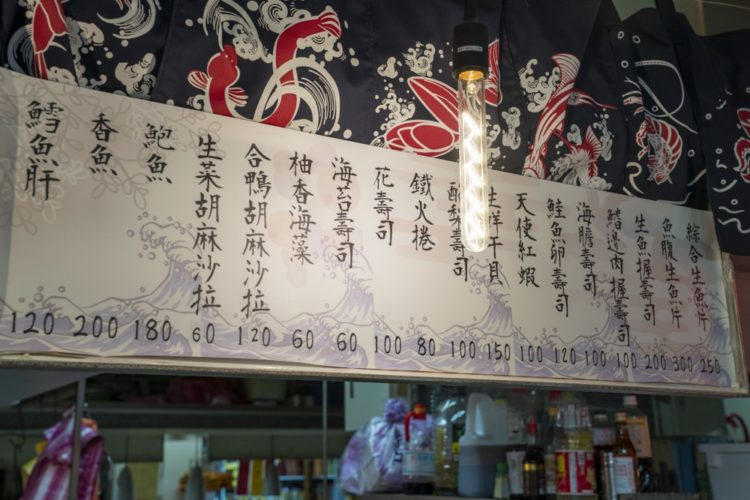 綜合生魚片 250
魚腹生魚片 300
生魚握壽司 200
鰭邊肉握壽司 100
海膽壽司 100
鮭魚卵壽司 120
天使紅蝦 100
干貝 150
壽司 100
鐵火捲 80
花壽司 100
海苔壽司 60
柚香海藻 60
合鴨胡麻沙拉 120
生菜胡麻沙拉 60
鮑魚 180
香魚 200
鱈魚肝 120